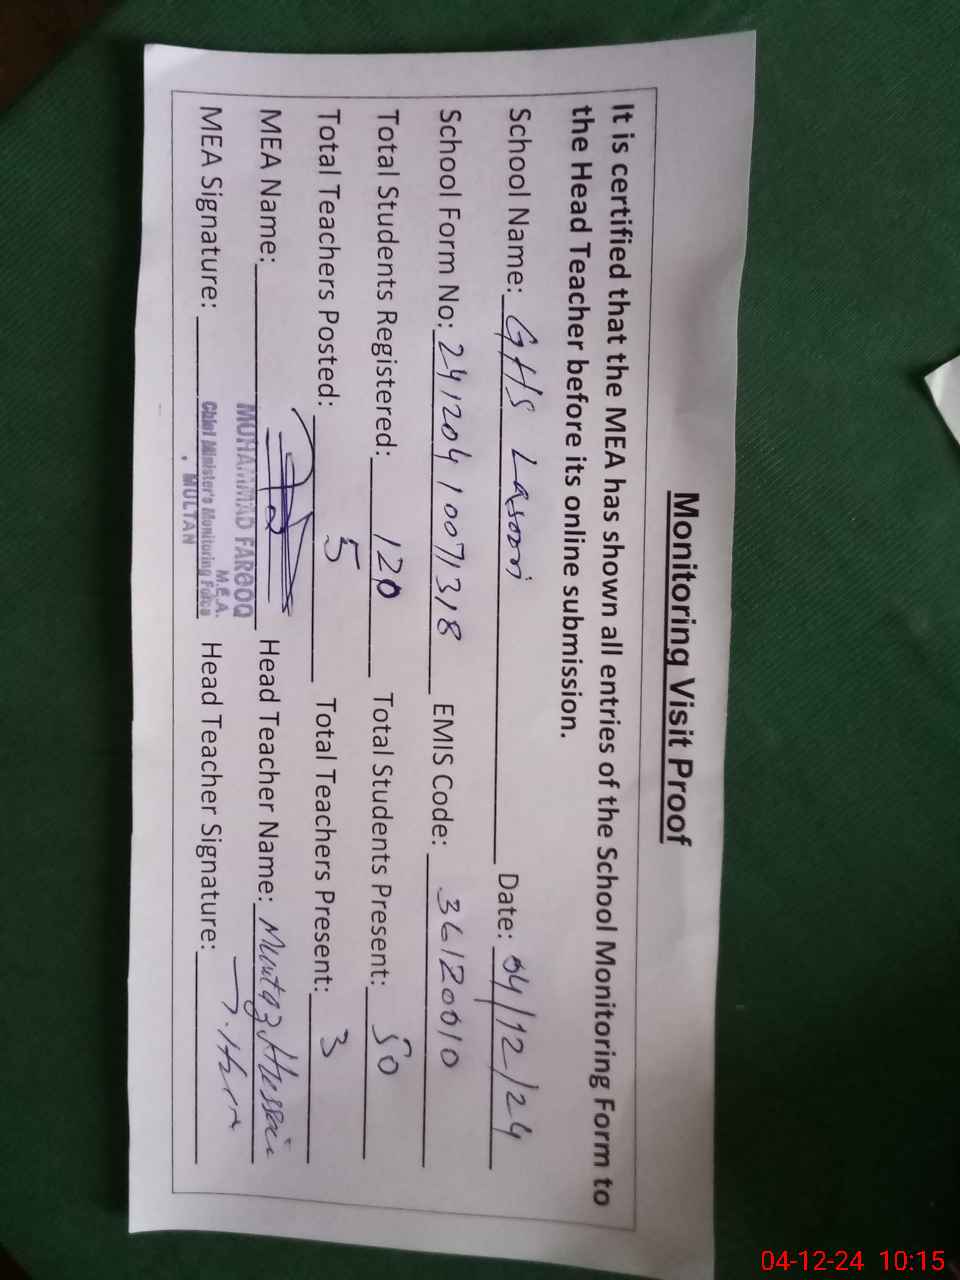 Monitoring Visit Proof
It is certified that the MEA has shown all entries of the School Monitoring Form to
the Head Teacher before its online submission.
School Name: GHS Lasoori Date: 04/12/24
School Form No: 2412041007318 EMIS Code: 36120010
Total Students Registered: 120 Total Students Present: 50
Total Teachers Posted: 5 Total Teachers Present: 3
MEA Name: MUHAMMAD FAROOQ Head Teacher Name: Mumtaz Hussain
M.E.A.
MEA Signature: Chief Minister's Monitoring Force Head Teacher Signature:
MULTAN
04-12-24 10:15